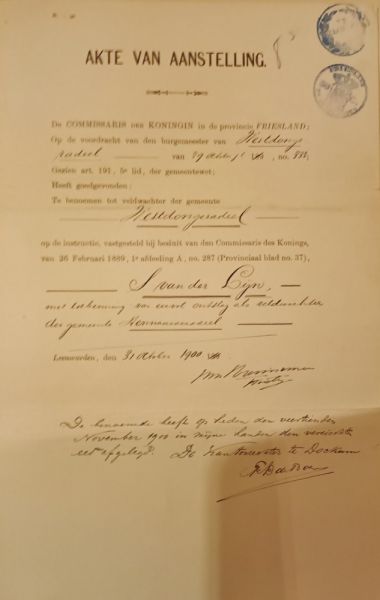 AKTE VAN AANSTELLING.
De COMMISSARIS DER KONINGIN in de provincie FRIESLAND;
Op de voordracht van den burgemeester van Westdonge
radeel van 29 October jl., no. 
Gezien art. 191, 5e lid, der gemeentewet;
Heeft goedgevonden:
Te benoemen tot veldwachter der gemeente
Westdongeradeel
op de instructie, vastgesteld bij besluit van den Commissaris des Konings,
van 26 Februari 1889, 1e afdeeling A, no. 287 (Provinciaal blad no. 37),
S. van der Lyn,
met toekenning van eervol ontslag als veldwachter
der gemeente Hennaarderadeel
Leeuwarden, den 31 October 1900
De benoemde heeft op heden den veertienden
November 1900 in mijne handen den vereischten
eed afgelegd. De Kantonrechter te Dockum